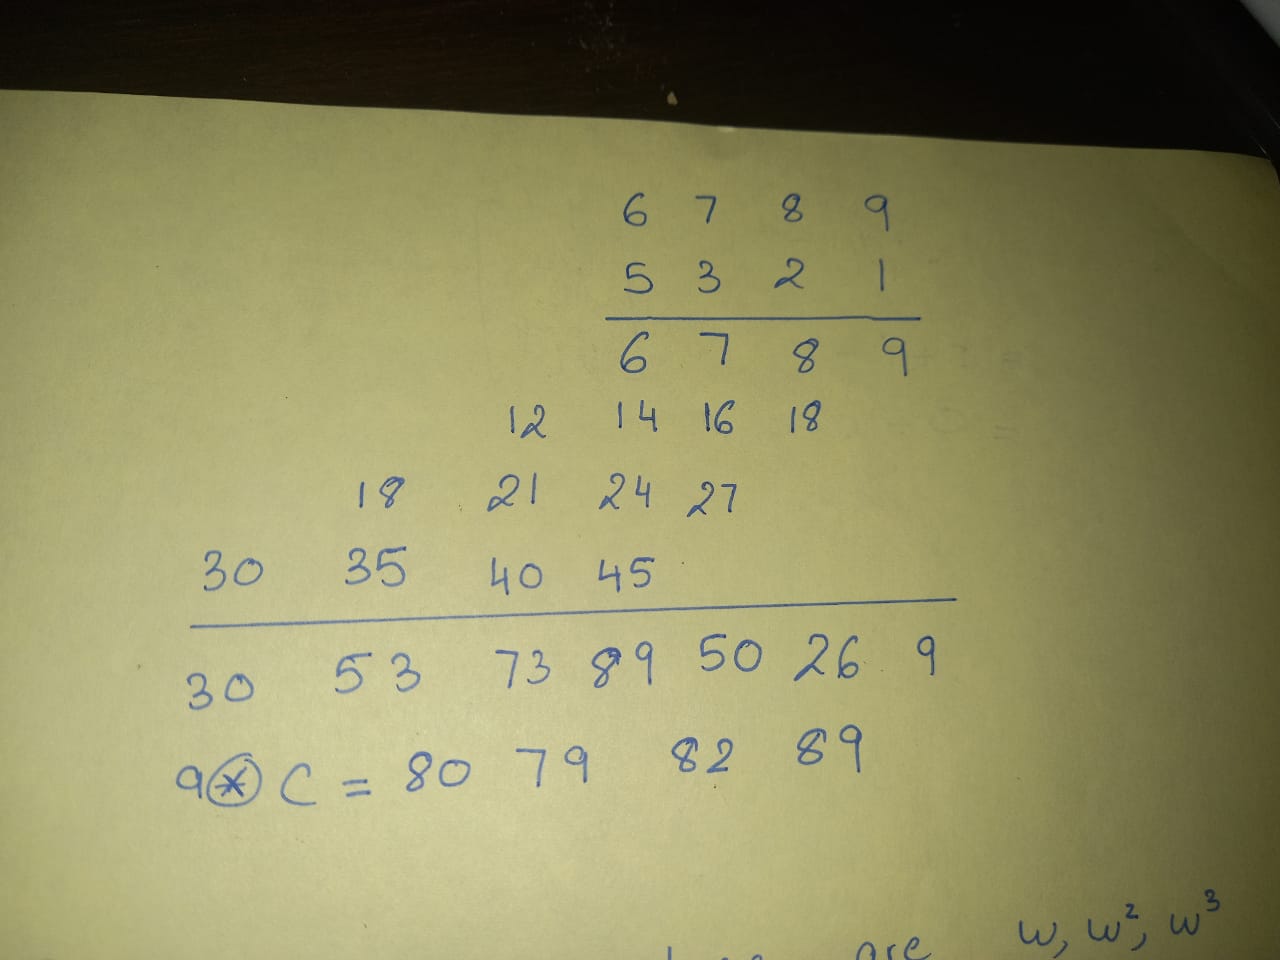 6 7 8 9
5 3 2 1
6 7 8 9
12 14 16 18
18 21 24 27
30 35 40 45
30 53 73 89 50 26 9
9 ⊛ C = 80 79 82 89
are w, w², w³